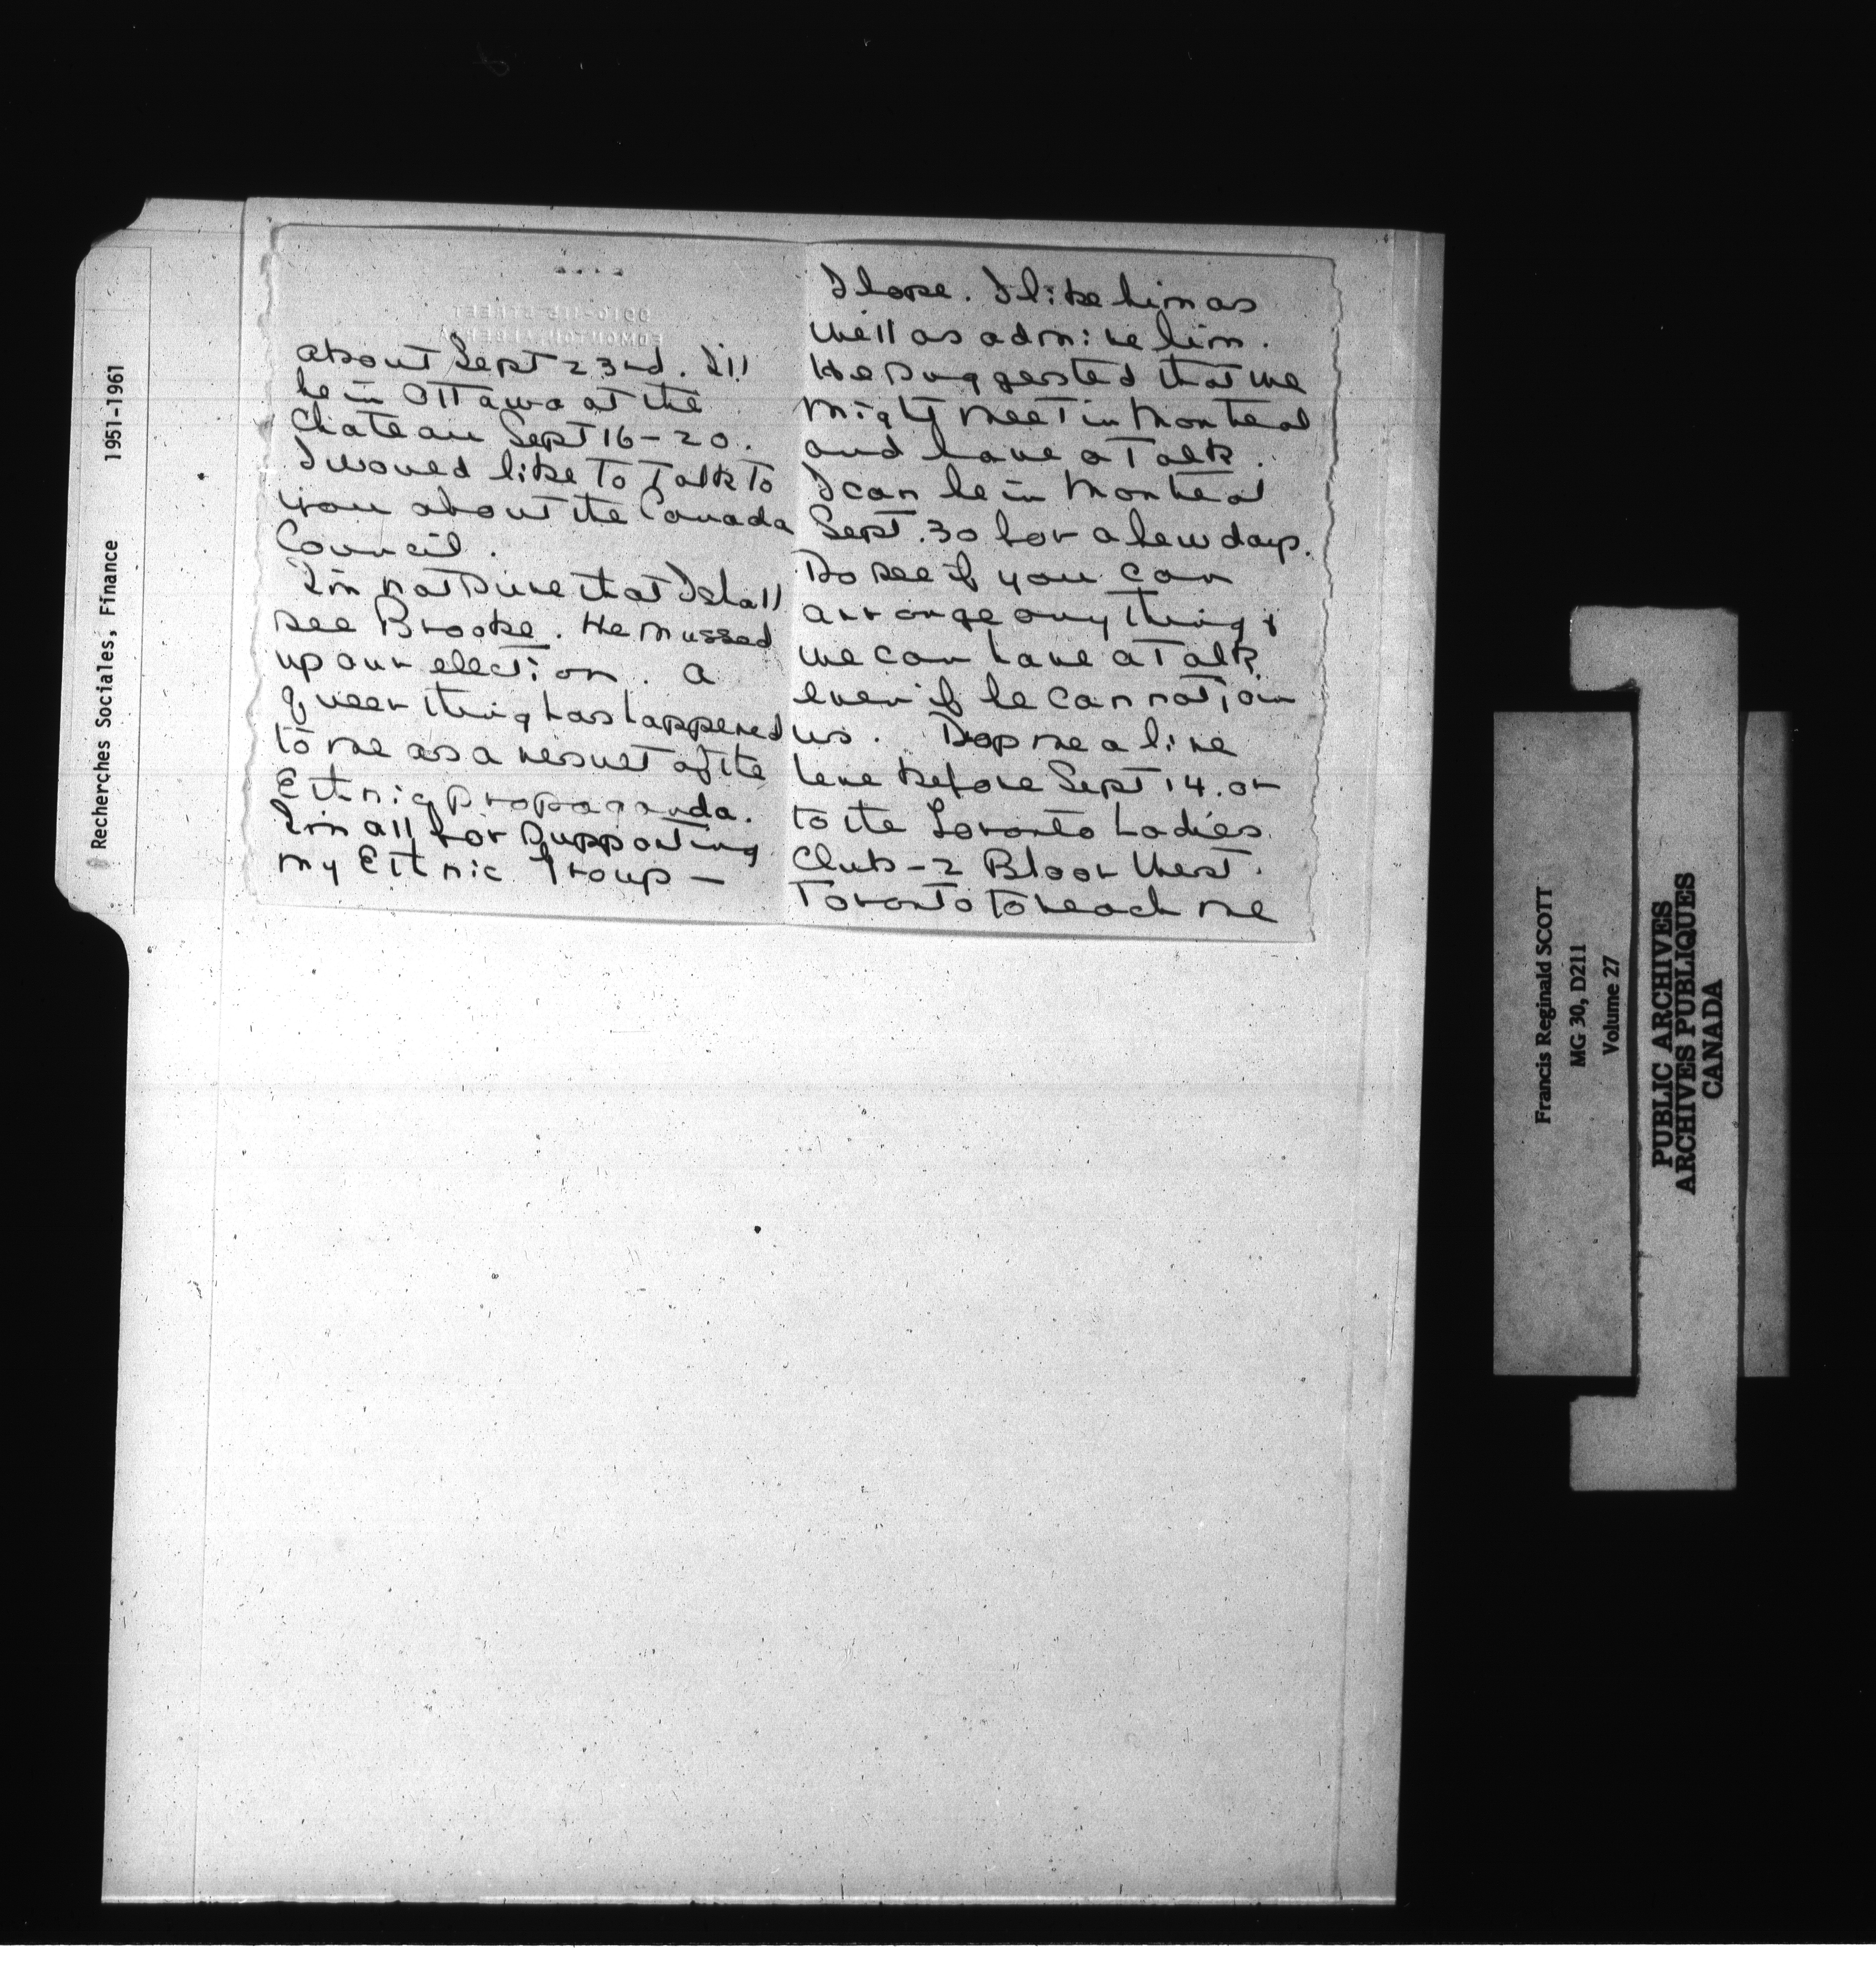 Recherches Sociales, Finance 1951-1961
about Sept 23rd. I'll
be in Ottawa at the
Chateau Sept 16-20.
I would like to talk to
you about the Canada
Council.
I'm not sure that I shall
see Brooke. He mussed
up our election. A
queer thing has happened
to me as a result of the
Ethnic propaganda.
I'm all for supporting
my Ethnic Group –
I hope. I like him as
well as admire him.
He suggested that we
might meet in Montreal
and have a talk.
I can be in Montreal
Sept. 30 for a few days.
Do see if you can
arrange anything &
we can have a talk
even if he can not join
us. Drop me a line
here before Sept 14. or
to the Toronto Ladies
Club - 2 Bloor West.
Toronto to reach me
Francis Reginald SCOTT
MG 30, D211
Volume 27
PUBLIC ARCHIVES
ARCHIVES PUBLIQUES
CANADA